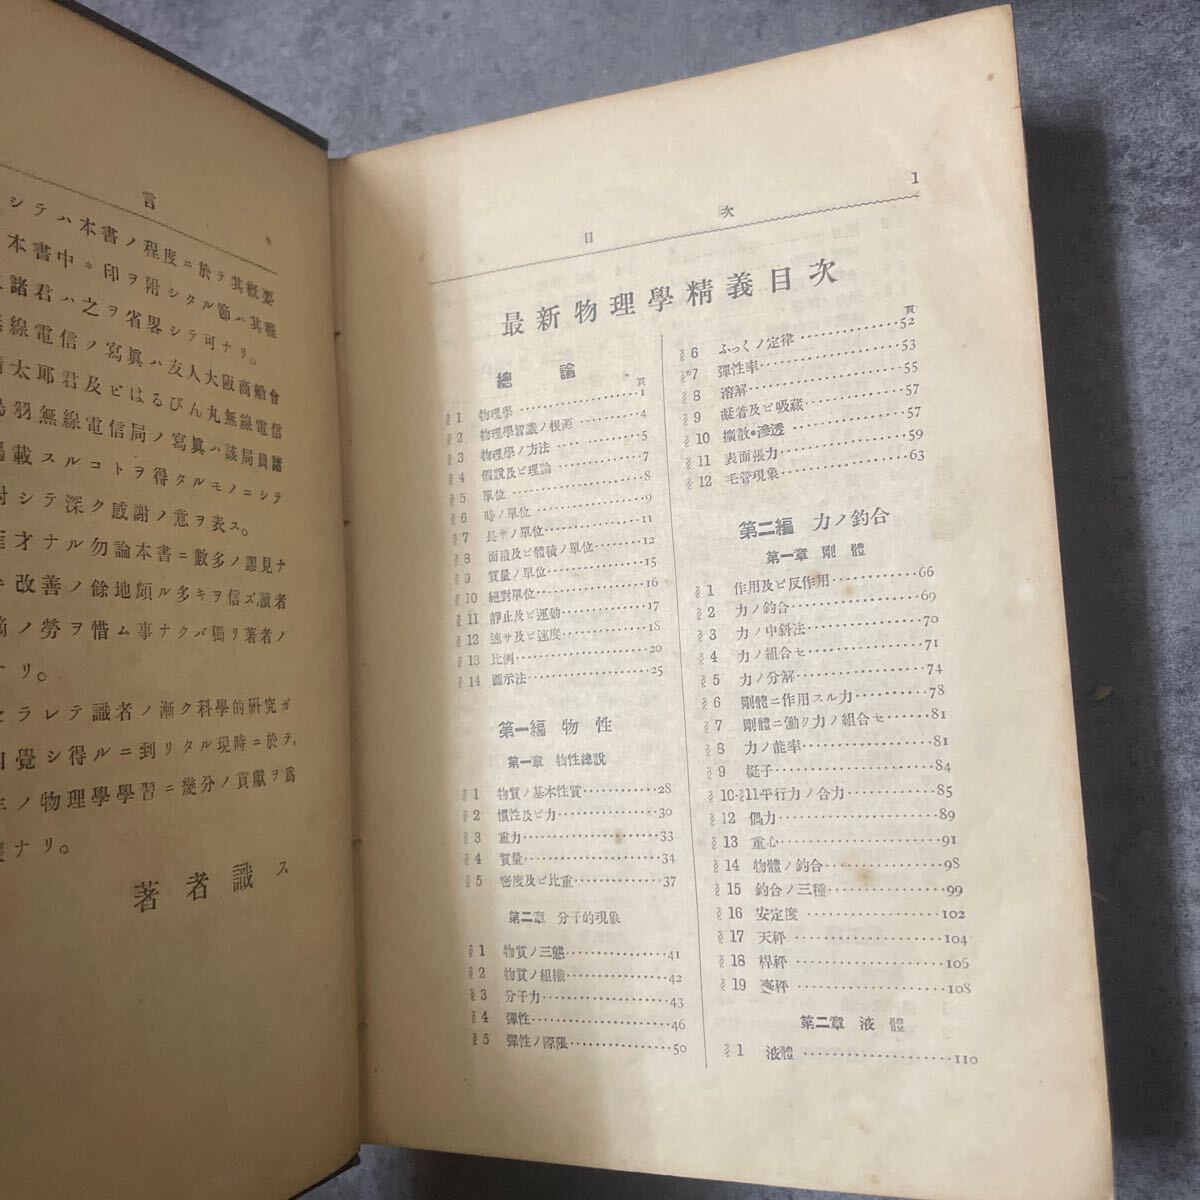 言
シテハ本書ノ程度ニ於テ其概要
本書中*印ヲ附シタル節ハ其程
諸君ハ之ヲ省畧シテ可ナリ。
線電信ノ寫眞ハ友人大阪商船會
太郞君及ビはるびん丸無線電信
羽無線電信局ノ寫眞ハ該局員諸
載スルコトヲ得タルモノニシテ
シテ深ク感謝ノ意ヲ表ス。
才ナル勿論本書ニ數多ノ謬見ナ
改善ノ餘地頗ル多キヲ信ズ讀者
ノ勞ヲ惜ム事ナクバ獨リ著者ノ
ナリ。
セラレテ識者ノ漸ク科學的硏究ガ
覺シ得ルニ到リタル現時ニ於テ,
ノ物理學學習ニ幾分ノ貢獻ヲ爲
ナリ。
著者識ス
目次 1
最新物理學精義目次
總論
頁
§1 物理學 1
§2 物理學智識ノ根源 4
§3 物理學ノ方法 5
§4 假說及ビ理論 7
§5 單位 8
§6 時ノ單位 9
§7 長サノ單位 11
§8 面積及ビ體積ノ單位 12
§9 質量ノ單位 15
§10 絕對單位 16
§11 靜止及ビ運動 17
§12 速サ及ビ速度 18
§13 比例 20
§14 圖示法 25
第一編 物性
第一章 物性總說
§1 物質ノ基本性質 28
§2 慣性及ビ力 30
§3 重力 33
§4 質量 34
§5 密度及ビ比重 37
第二章 分子的現象
§1 物質ノ三態 41
§2 物質ノ組織 42
§3 分子力 43
§4 彈性 46
§5 彈性ノ際限 50
頁
§6 ふっくノ定律 52
§*7 彈性率 53
§8 溶解 55
§9 凝着及ビ吸藏 57
§10 擴散•滲透 57
§11 表面張力 59
§12 毛管現象 63
第二編 力ノ釣合
第一章 剛體
§1 作用及ビ反作用 66
§2 力ノ釣合 69
§3 力ノ中斜法 70
§4 力ノ組合セ 71
§5 力ノ分解 74
§6 剛體ニ作用スル力 78
§7 剛體ニ働ク力ノ組合セ 81
§8 力ノ能率 81
§9 梃子 84
§10-§11 平行力ノ合力 85
§12 偶力 89
§13 重心 91
§14 物體ノ釣合 98
§15 釣合ノ三種 99
§16 安定度 102
§17 天秤 104
§18 桿秤 106
§19 臺秤 108
第二章 液體
§1 液體 110